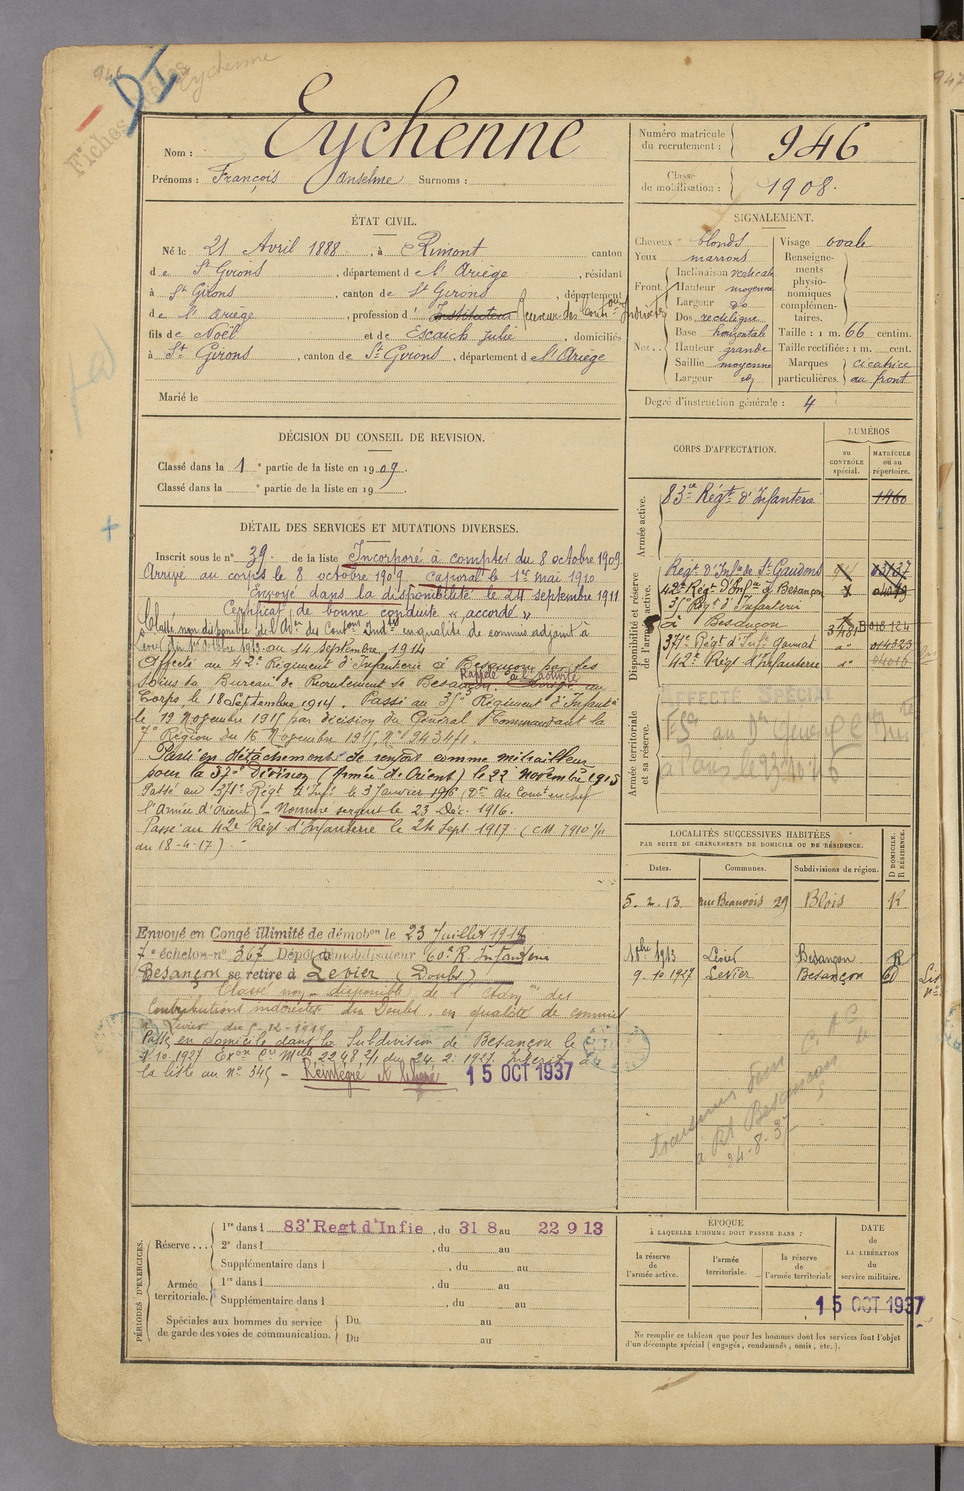 946
Eychenne
Fiches
Nom : Eychenne
Prénoms : François Anselme Surnoms :
Numéro matricule du recrutement : 946
Classe de mobilisation : 1908.
ÉTAT CIVIL.
Né le 21 Avril 1888, à Rimont canton
de St Girons, département de l'Ariège, résidant
à St Girons, canton de St Girons, département
de l'Ariège, profession d'Instituteur Receveur des Contr.ons Indirectes
fils de Noël et de Escaich Julie, domiciliés
à St Girons, canton de St Girons, département de l'Ariège
Marié le
SIGNALEMENT.
Cheveux blonds
Yeux marrons
Front. Inclinaison verticale
Hauteur moyenne
Largeur do
Nez.. Dos rectiligne
Base horizontale
Hauteur grande
Saillie moyenne
Largeur do
Visage ovale
Renseignements physionomiques complémentaires.
Taille : 1 m. 66 centim.
Taille rectifiée : 1 m. cent.
Marques particulières. cicatrice au front
Degré d'instruction générale : 4
DÉCISION DU CONSEIL DE REVISION.
Classé dans la 1e partie de la liste en 1909.
Classé dans la e partie de la liste en 19 .
DÉTAIL DES SERVICES ET MUTATIONS DIVERSES.
Inscrit sous le n° 39. de la liste Incorporé à compter du 8 octobre 1909
Arrivé au corps le 8 octobre 1909 caporal le 1er mai 1910
Envoyé dans la disponibilité le 24 septembre 1911
Certificat de bonne conduite « accordé »
Classé non disponible de l'Aon des Contons Indtes en qualité de commis adjoint à
Levier du 1er Octobre 1913 au 14 septembre 1914
Affecté au 42e Régiment d'Infanterie à Besançon par les
soins du Bureau de Recrutement de Besançon. Rappelé à l'activité au
Corps le 18 Septembre 1914. Passé au 35e Régiment d'Infanterie
le 19 Novembre 1915 par décision du Général Commandant la
7e Région du 16 Novembre 1915, N° 24347/1.
Parti en détachement de renfort comme mitrailleur
pour la 57e Division (Armée d'Orient) le 22 Novembre 1915
Passé au 371e Régt d'Infie le 3 Janvier 1916 (Don du Comt en chef
l'Armée d'Orient) - Nommé sergent le 23 Déc. 1916.
Passé au 42e Régt d'Infanterie le 24 Sept. 1917 (CM. 7910 1/11
du 18-4-17)
Envoyé en Congé illimité de démobon le 23 Juillet 1919
7e échelon n° 367 Dépôt démobilisateur 60e R. Infanterie
Besançon se retire à Levier (Doubs)
Classé non-disponible de l'Admon des
Contributions indirectes du Doubs en qualité de commis
à Levier du
Passé en domicile dans la Subdivision de Besançon le
9.10.1927 2248 3/1 du 24.2.1927. Inscrit à
la liste au n° 345 - Réintégré et libéré 15 OCT 1937
CORPS D'AFFECTATION.
NUMÉROS
au CONTRÔLE spécial.
MATRICULE ou au répertoire.
Armée active.
83e Régt d'Infanterie 1460
Disponibilité et réserve de l'armée active.
Regt d'Infie de St Gaudens
42e Régt d'Infie à Besançon
35e Régt d'Infanterie
à Besançon
371e Régt d'Infie
42e Régt d'Infanterie
Armée territoriale et sa réserve.
AFFECTÉ SPÉCIAL
LOCALITÉS SUCCESSIVES HABITÉES
PAR SUITE DE CHANGEMENTS DE DOMICILE OU DE RÉSIDENCE.
Dates. Communes. Subdivisions de région. D DOMICILE. R RÉSIDENCE.
5. 2. 13. rue Beauvois 29 Blois R
1 8bre 1913 Levier Besançon R
9. 10. 1927 Levier Besançon D
transmis
à Rt Besançon
24.8.37
PÉRIODES D'EXERCICES.
Réserve ... 1re dans l 83e Regt d'Infie, du 31 8 au 22 9 13
2e dans l , du au
Supplémentaire dans l , du au
Armée territoriale. 1re dans l , du au
Supplémentaire dans l , du au
Spéciales aux hommes du service de garde des voies de communication. Du au
Du au
ÉPOQUE
À LAQUELLE L'HOMME DOIT PASSER DANS :
la réserve de l'armée active.
l'armée territoriale.
la réserve de l'armée territoriale
DATE de LA LIBÉRATION du service militaire.
15 OCT 1937
Ne remplir ce tableau que pour les hommes dont les services font l'objet
d'un décompte spécial (engagés, condamnés, omis, etc.).